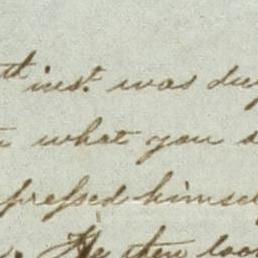 th inst. was du
what you s
pressed himsel
He then loo